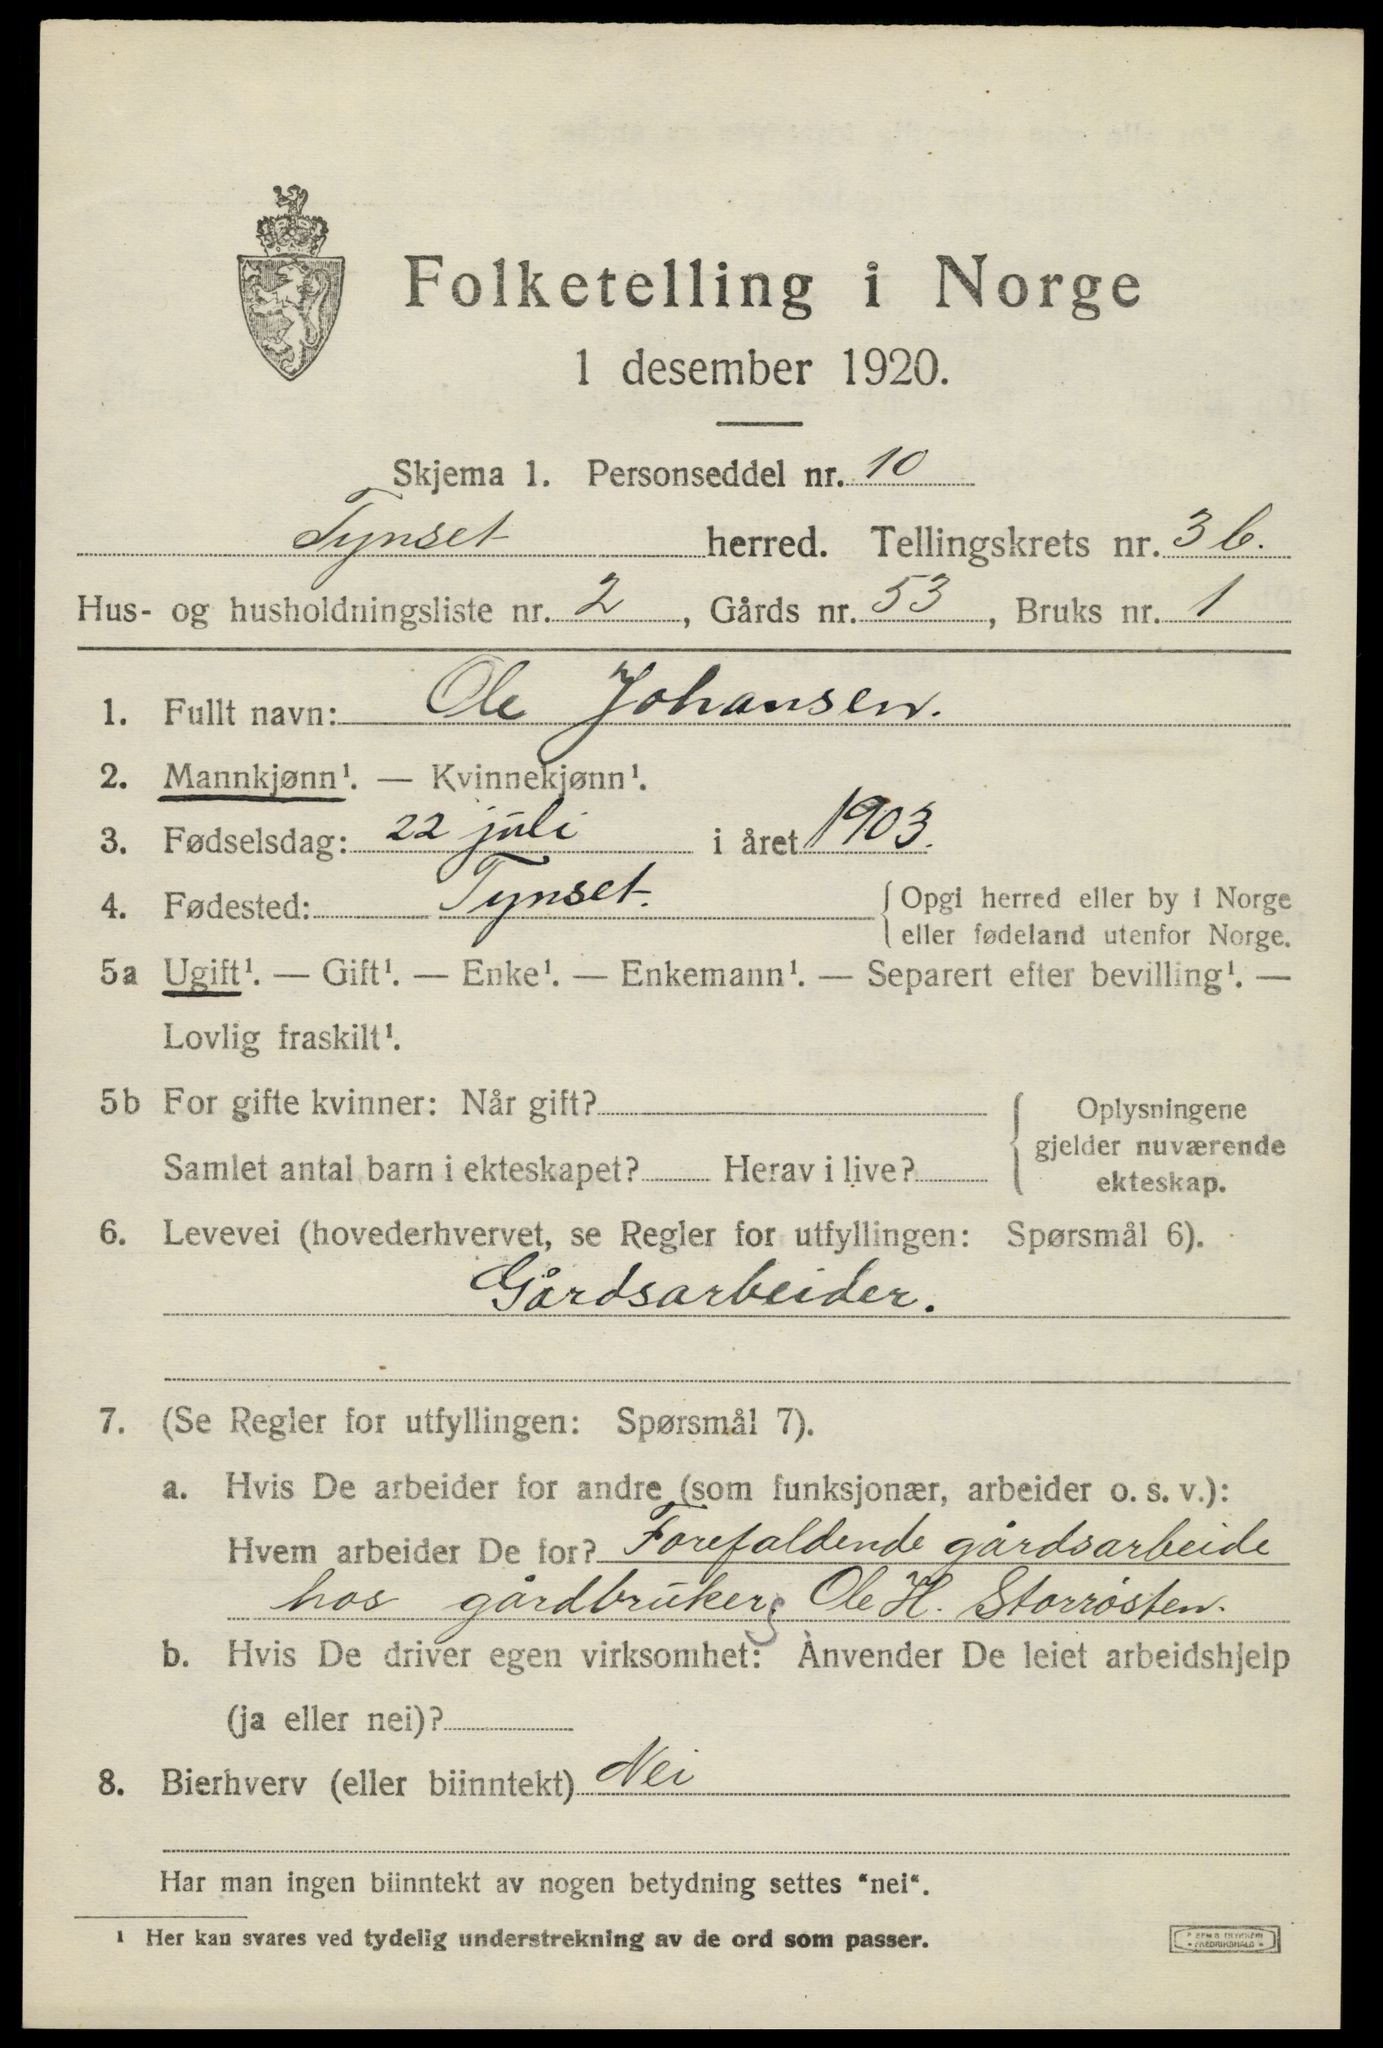 Folketelling i Norge
1 desember 1920.
Skjema 1. Personseddel nr. 10
Tynset herred. Tellingskrets nr. 3b.
Hus- og husholdningsliste nr. 2, Gårds nr. 53, Bruks nr. 1
1. Fullt navn: Ole Johansen.
2. Mannkjønn¹. — Kvinnekjønn¹.
3. Fødselsdag: 22 juli i året 1903.
4. Fødested: Tynset. Opgi herred eller by i Norge
eller fødeland utenfor Norge.
5a Ugift¹. — Gift¹. — Enke¹. — Enkemann¹. — Separert efter bevilling¹. —
Lovlig fraskilt¹.
5b For gifte kvinner: Når gift? Oplysningene
gjelder nuværende
Samlet antal barn i ekteskapet? Herav i live?
ekteskap.
6. Levevei (hovederhvervet, se Regler for utfyllingen: Spørsmål 6).
Gårdsarbeider.
7. (Se Regler for utfyllingen: Spørsmål 7).
a. Hvis De arbeider for andre (som funksjonær, arbeider o. s. v.):
Hvem arbeider De for? Forefaldende gårdsarbeide
hos gårdbruker, Ole H. Storrøsten.
b. Hvis De driver egen virksomhet: Anvender De leiet arbeidshjelp
(ja eller nei)?
8. Bierhverv (eller biinntekt) Nei
Har man ingen biinntekt av nogen betydning settes "nei".
¹ Her kan svares ved tydelig understrekning av de ord som passer.